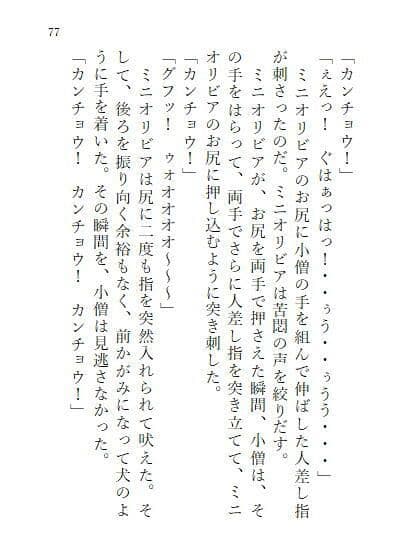 77
「カンチョウ！」
「ぇえっ！　ぐはぁっはっ！・・ぅう・・ぅうう・・・」
　ミニオリビアのお尻に小僧の手を組んで伸ばした人差し指
が刺さったのだ。ミニオリビアは苦悶の声を絞りだす。
　ミニオリビアが、お尻を両手で押さえた瞬間、小僧は、そ
の手をはらって、両手でさらに人差し指を突き立てて、ミニ
オリビアのお尻に押し込むように突き刺した。
「カンチョウ！」
「グフッ！　ゥォオオオオ～～～」
　ミニオリビアは尻に二度も指を突然入れられて吠えた。そ
して、後ろを振り向く余裕もなく、前かがみになって犬のよ
うに手を着いた。その瞬間を、小僧は見逃さなかった。
「カンチョウ！　カンチョウ！　カンチョウ！」